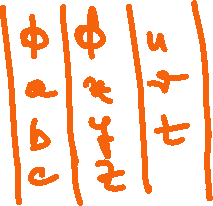 | ϕ | ϕ | u |
| a | x | y |
| b | y | t |
| c | z |